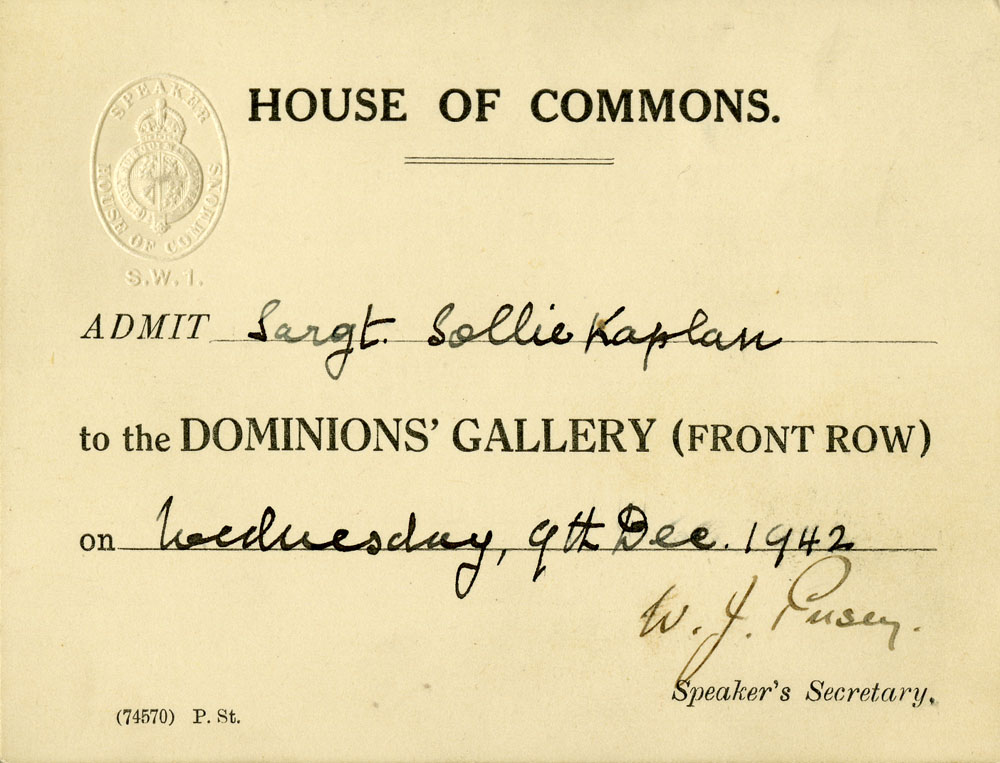 SPEAKER
HOUSE OF COMMONS
S.W.1.
HOUSE OF COMMONS.
ADMIT Sargt. Sollie Kaplan
to the DOMINIONS' GALLERY (FRONT ROW)
on Wednesday, 9th Dec. 1942
W. J. Pusey.
Speaker's Secretary.
(74570) P. St.